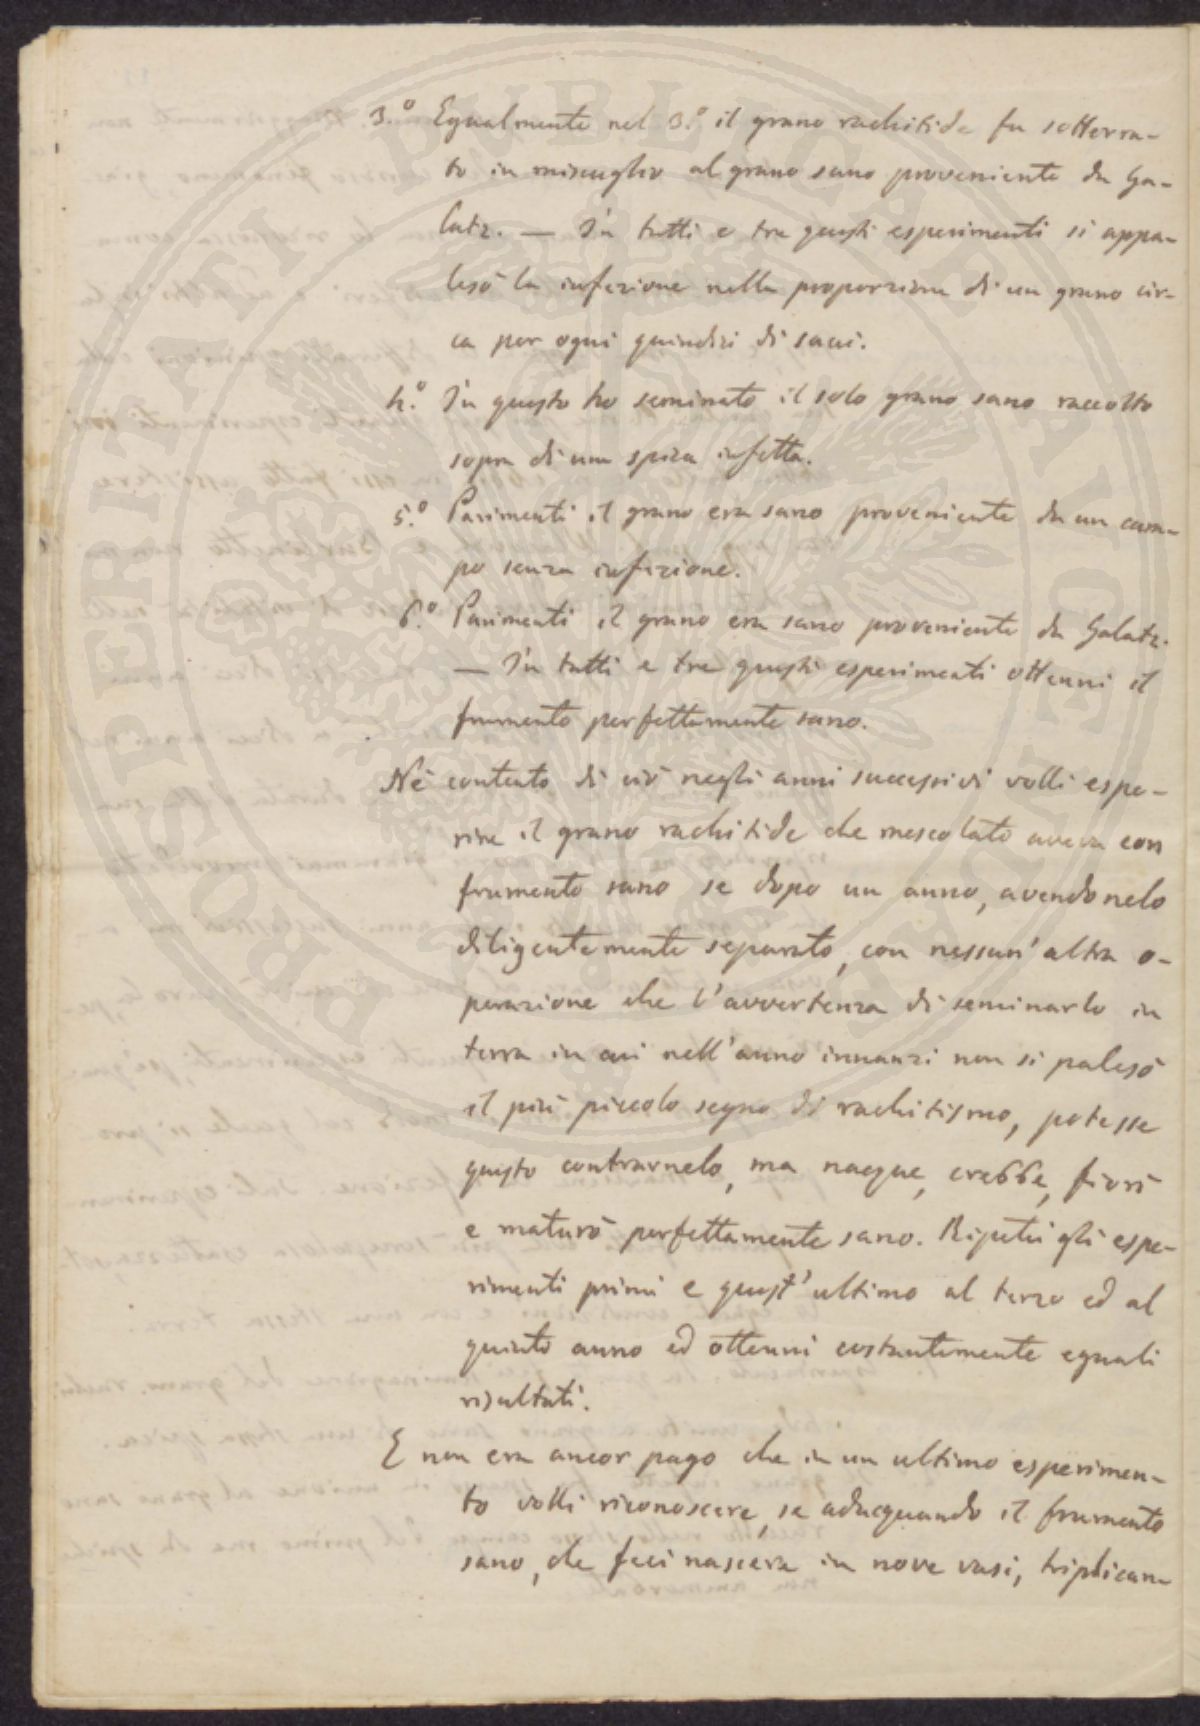 3.º Egualmente nel 3.º il grano rachitide fu sotterra-
to in miscuglio al grano sano proveniente da Ga-
latz. — In tutti e tre questi esperimenti si appa-
lesò la infezione nella proporzione di un grano cir-
ca per ogni quindici di sani.
4.º In questo ho seminato il solo grano sano raccolto
sopra di una spica infetta.
5.º Parimenti il grano era sano proveniente da un cam-
po senza infezione.
6.º Parimenti il grano era sano proveniente da Galatz.
— In tutti e tre questi esperimenti ottenni il
frumento perfettamente sano.
Nè contento di ciò negli anni successivi volli espe-
rire il grano rachitide che mescolato aveva con
frumento sano se dopo un anno, avendonelo
diligentemente separato, con nessun'altra o-
perazione che l'avvertenza di seminarlo in
terra in cui nell'anno innanzi non si palesò
il più piccolo segno di rachitismo, potesse
questo contrarnelo, ma nacque, crebbe, fiorì
e maturò perfettamente sano. Ripetei gli espe-
rimenti primi e quest'ultimo al terzo ed al
quinto anno ed ottenni costantemente eguali
risultati.
E non era ancor pago che in un ultimo esperimen-
to volli riconoscere, se adacquando il frumento
sano, che feci nascere in nove vasi, triplican-
PROSPERITATI PUBLICAE AUGENDAE